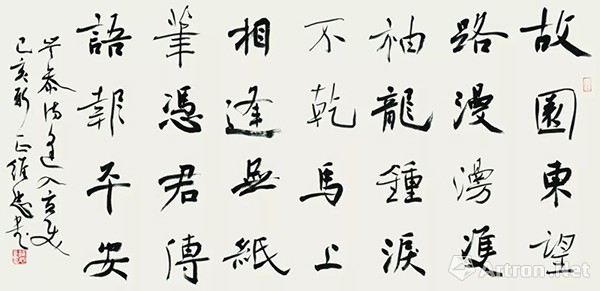 故園東望
路漫漫雙
袖龍鍾淚
不乾馬上
相逢無紙
筆憑君傳
語報平安
岑參詩逢入京使
己亥新正維忠書
Artron.Net